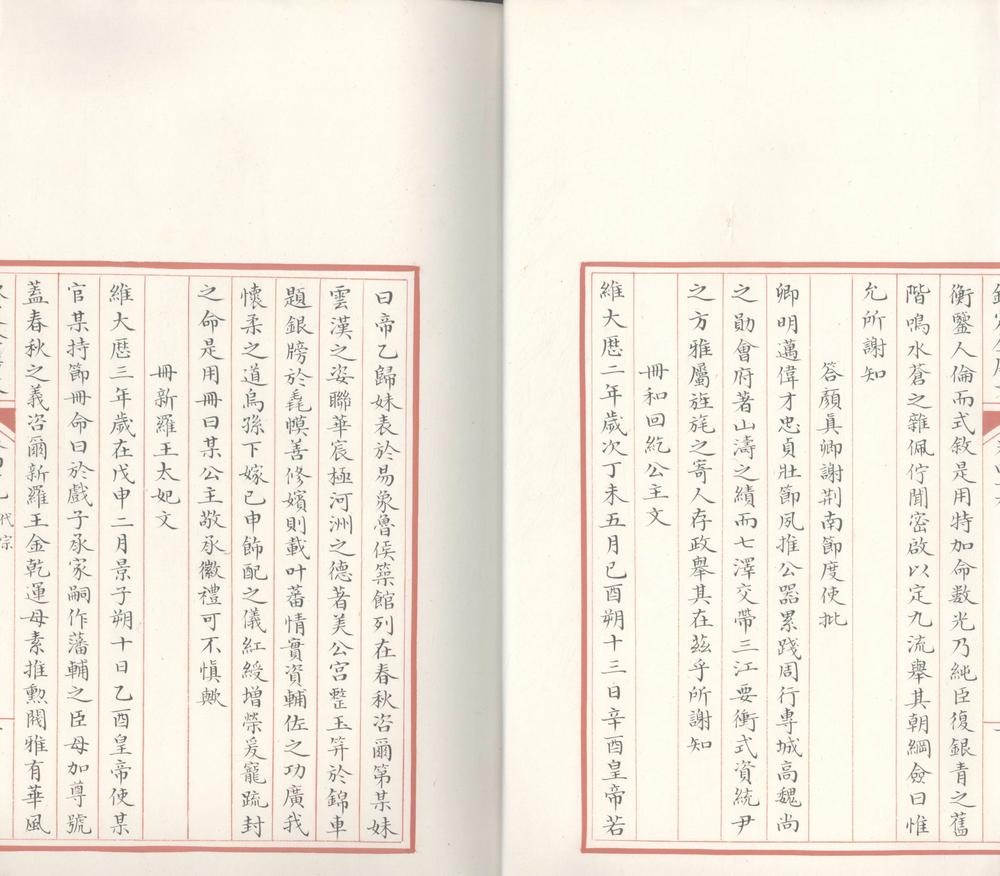 衡鑒人倫而式敘是用特加命數光乃純臣復銀青之舊
階鳴水蒼之雜佩佇聞密啟以定九流舉其朝綱僉曰惟
允所謝知
答顏真卿謝荆南節度使批
卿明邁偉才忠貞壯節夙推公器累踐周行專城高魏尚
之勛會府著山濤之績而七澤交帶三江要衝式資統尹
之方雅屬旌旄之寄人存政舉其在茲乎所謝知
冊和回紇公主文
維大厯二年歲次丁未五月己酉朔十三日辛酉皇帝若
曰帝乙歸妹表於易象魯侯築館列在春秋咨爾第某妹
雲漢之姿聯華宸極河洲之德著美公宫整玉筓於錦車
題銀牓於毳幙善修嬪則載叶蕃情實資輔佐之功廣我
懷柔之道烏孫下嫁已申飾配之儀紅綬增榮爰寵疏封
之命是用冊曰某公主敬承徽禮可不慎歟
冊新羅王太妃文
維大厯三年歲在戊申二月景子朔十日乙酉皇帝使某
官某持節冊命曰於戲子承家嗣作藩輔之臣母加尊號
蓋春秋之義咨爾新羅王金乾運母素推勲閥雅有華風
代宗